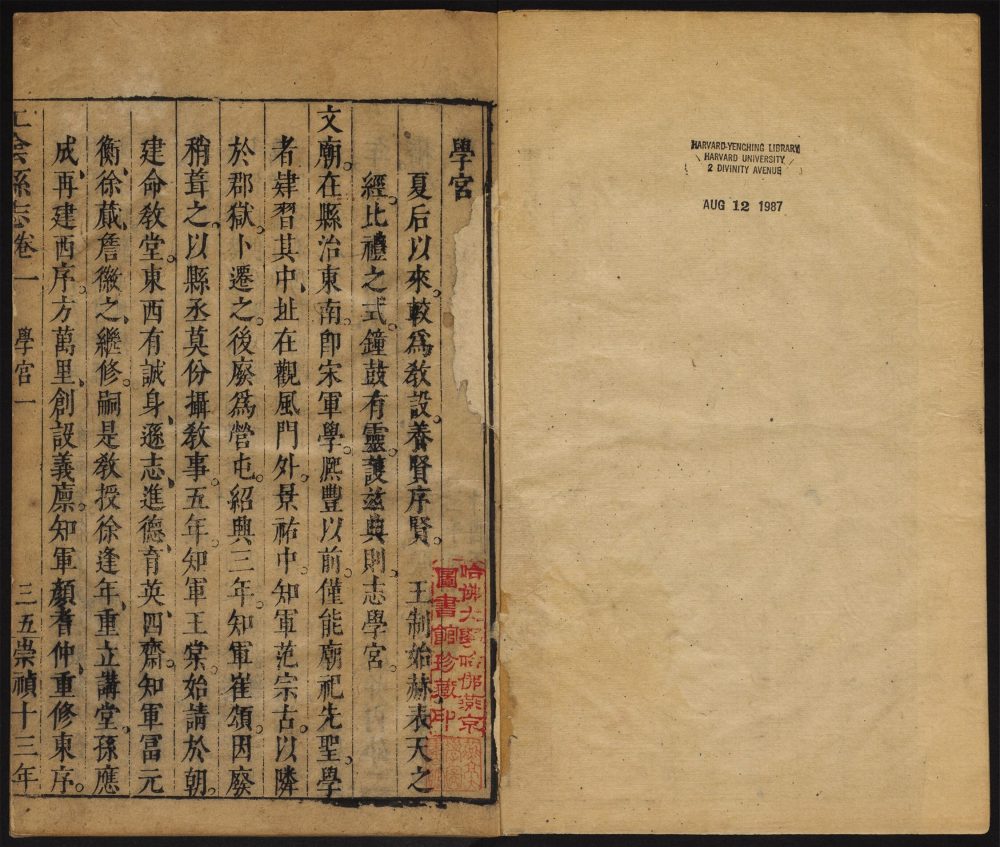 學宮
夏后以來較為教設養賢序賢。 王制始赫表天之
經比禮之式鐘鼓有靈護茲典則志學宮
文廟在縣治東南即宋軍學熙豐以前僅能廟祀先聖學
者肄習其中址在觀風門外景祐中知軍范宗古以隣
於郡獄卜遷之後廢為營屯紹興三年知軍崔頌因廢
稍葺之以縣丞莫份攝教事五年知軍王棠始請於朝
建命教堂東西有誠身遜志進德育英四齋知軍冨元
衡徐蕆詹徽之繼修嗣是教授徐逢年重立講堂孫應
成再建西序方萬里創設義廩知軍顏耆仲重修東序
江陰縣志卷一 學宮一 三五崇禎十三年
HARVARD-YENCHING LIBRARY
HARVARD UNIVERSITY
2 DIVINITY AVENUE
AUG 12 1987
哈佛大學哈佛燕京
圖書館珍藏印